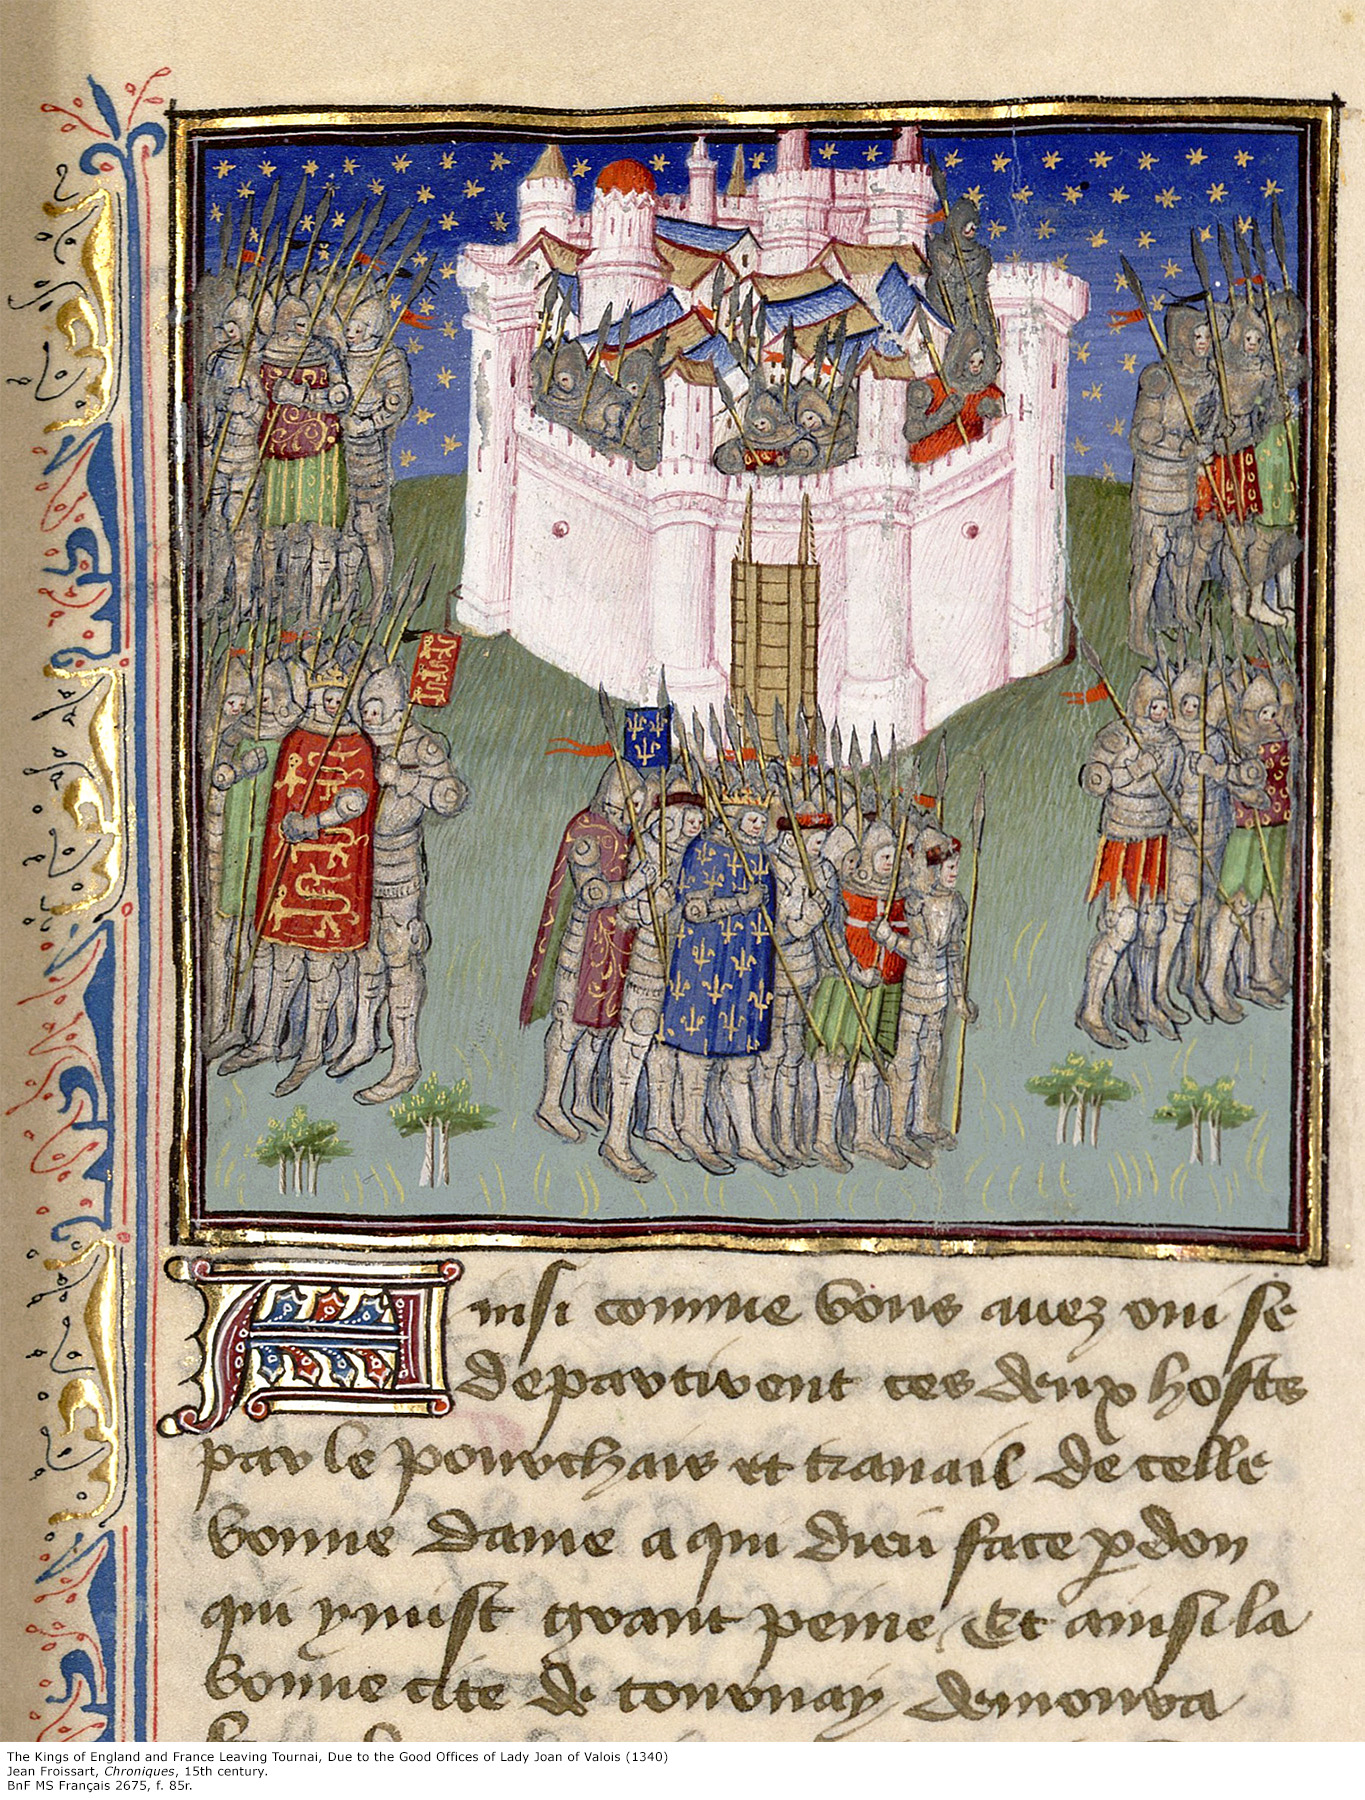 Ainsi comme vous avez oui se
departirent ces deux hosts
par le pourchais et travail de celle
bonne dame a qui dieu face pdon
qui y mist grant peine. Et ainsi la
bonne cite de tournay demoura
The Kings of England and France Leaving Tournai, Due to the Good Offices of Lady Joan of Valois (1340)
Jean Froissart, Chroniques, 15th century.
BnF MS Français 2675, f. 85r.